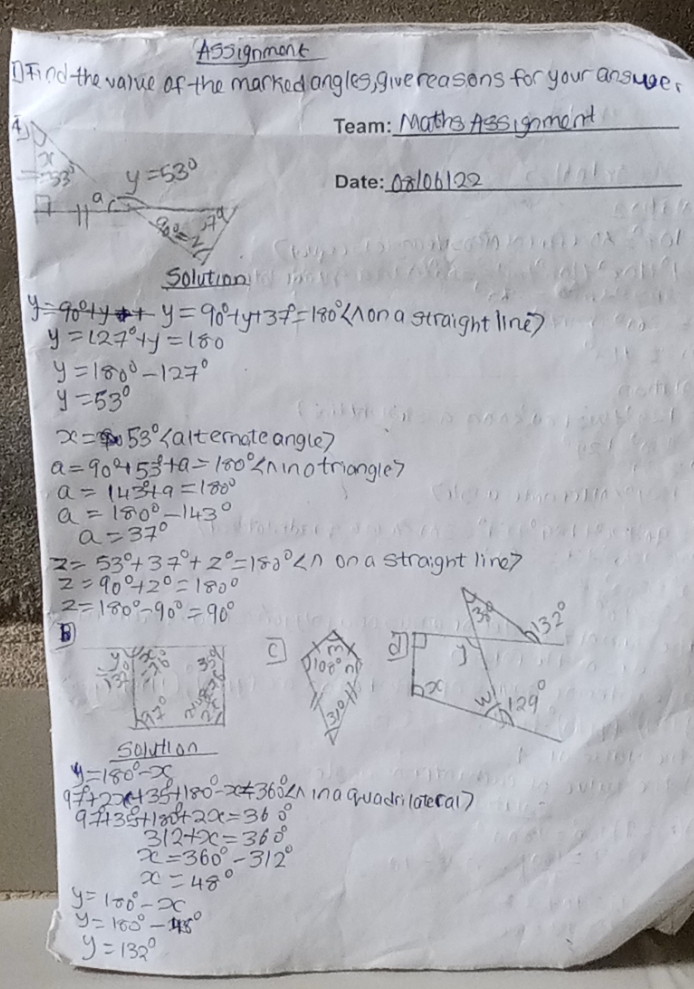 Assignment
1) Find the value of the marked angles, give reasons for your answer.
Team: Maths Assignment
A)
x
=53°
y = 53°
Date: 08/06/22
a
37°
90° = z
Solution
y = 90°+y+37° = 180° <^ on a straight line>
y = 127°+y = 180
y = 180° - 127°
y = 53°
x = 53° <alternate angle>
a = 90°+53°+a = 180° <^ in a triangle>
a = 143°+a = 180°
a = 180° - 143°
a = 37°
z = 53°+37°+z° = 180° <^ on a straight line>
z = 90°+z° = 180°
z = 180° - 90° = 90°
B
y
x
35°
97°
2x
C
m
108°
n
31°
d
38°
132°
y
x
w
129°
Solution
y = 180° - x
97°+2x+35°+180°-x=360° <^ in a quadrilateral>
97+35+180+2x = 360°
312+x = 360°
x = 360° - 312°
x = 48°
y = 180° - x
y = 180° - 48°
y = 132°